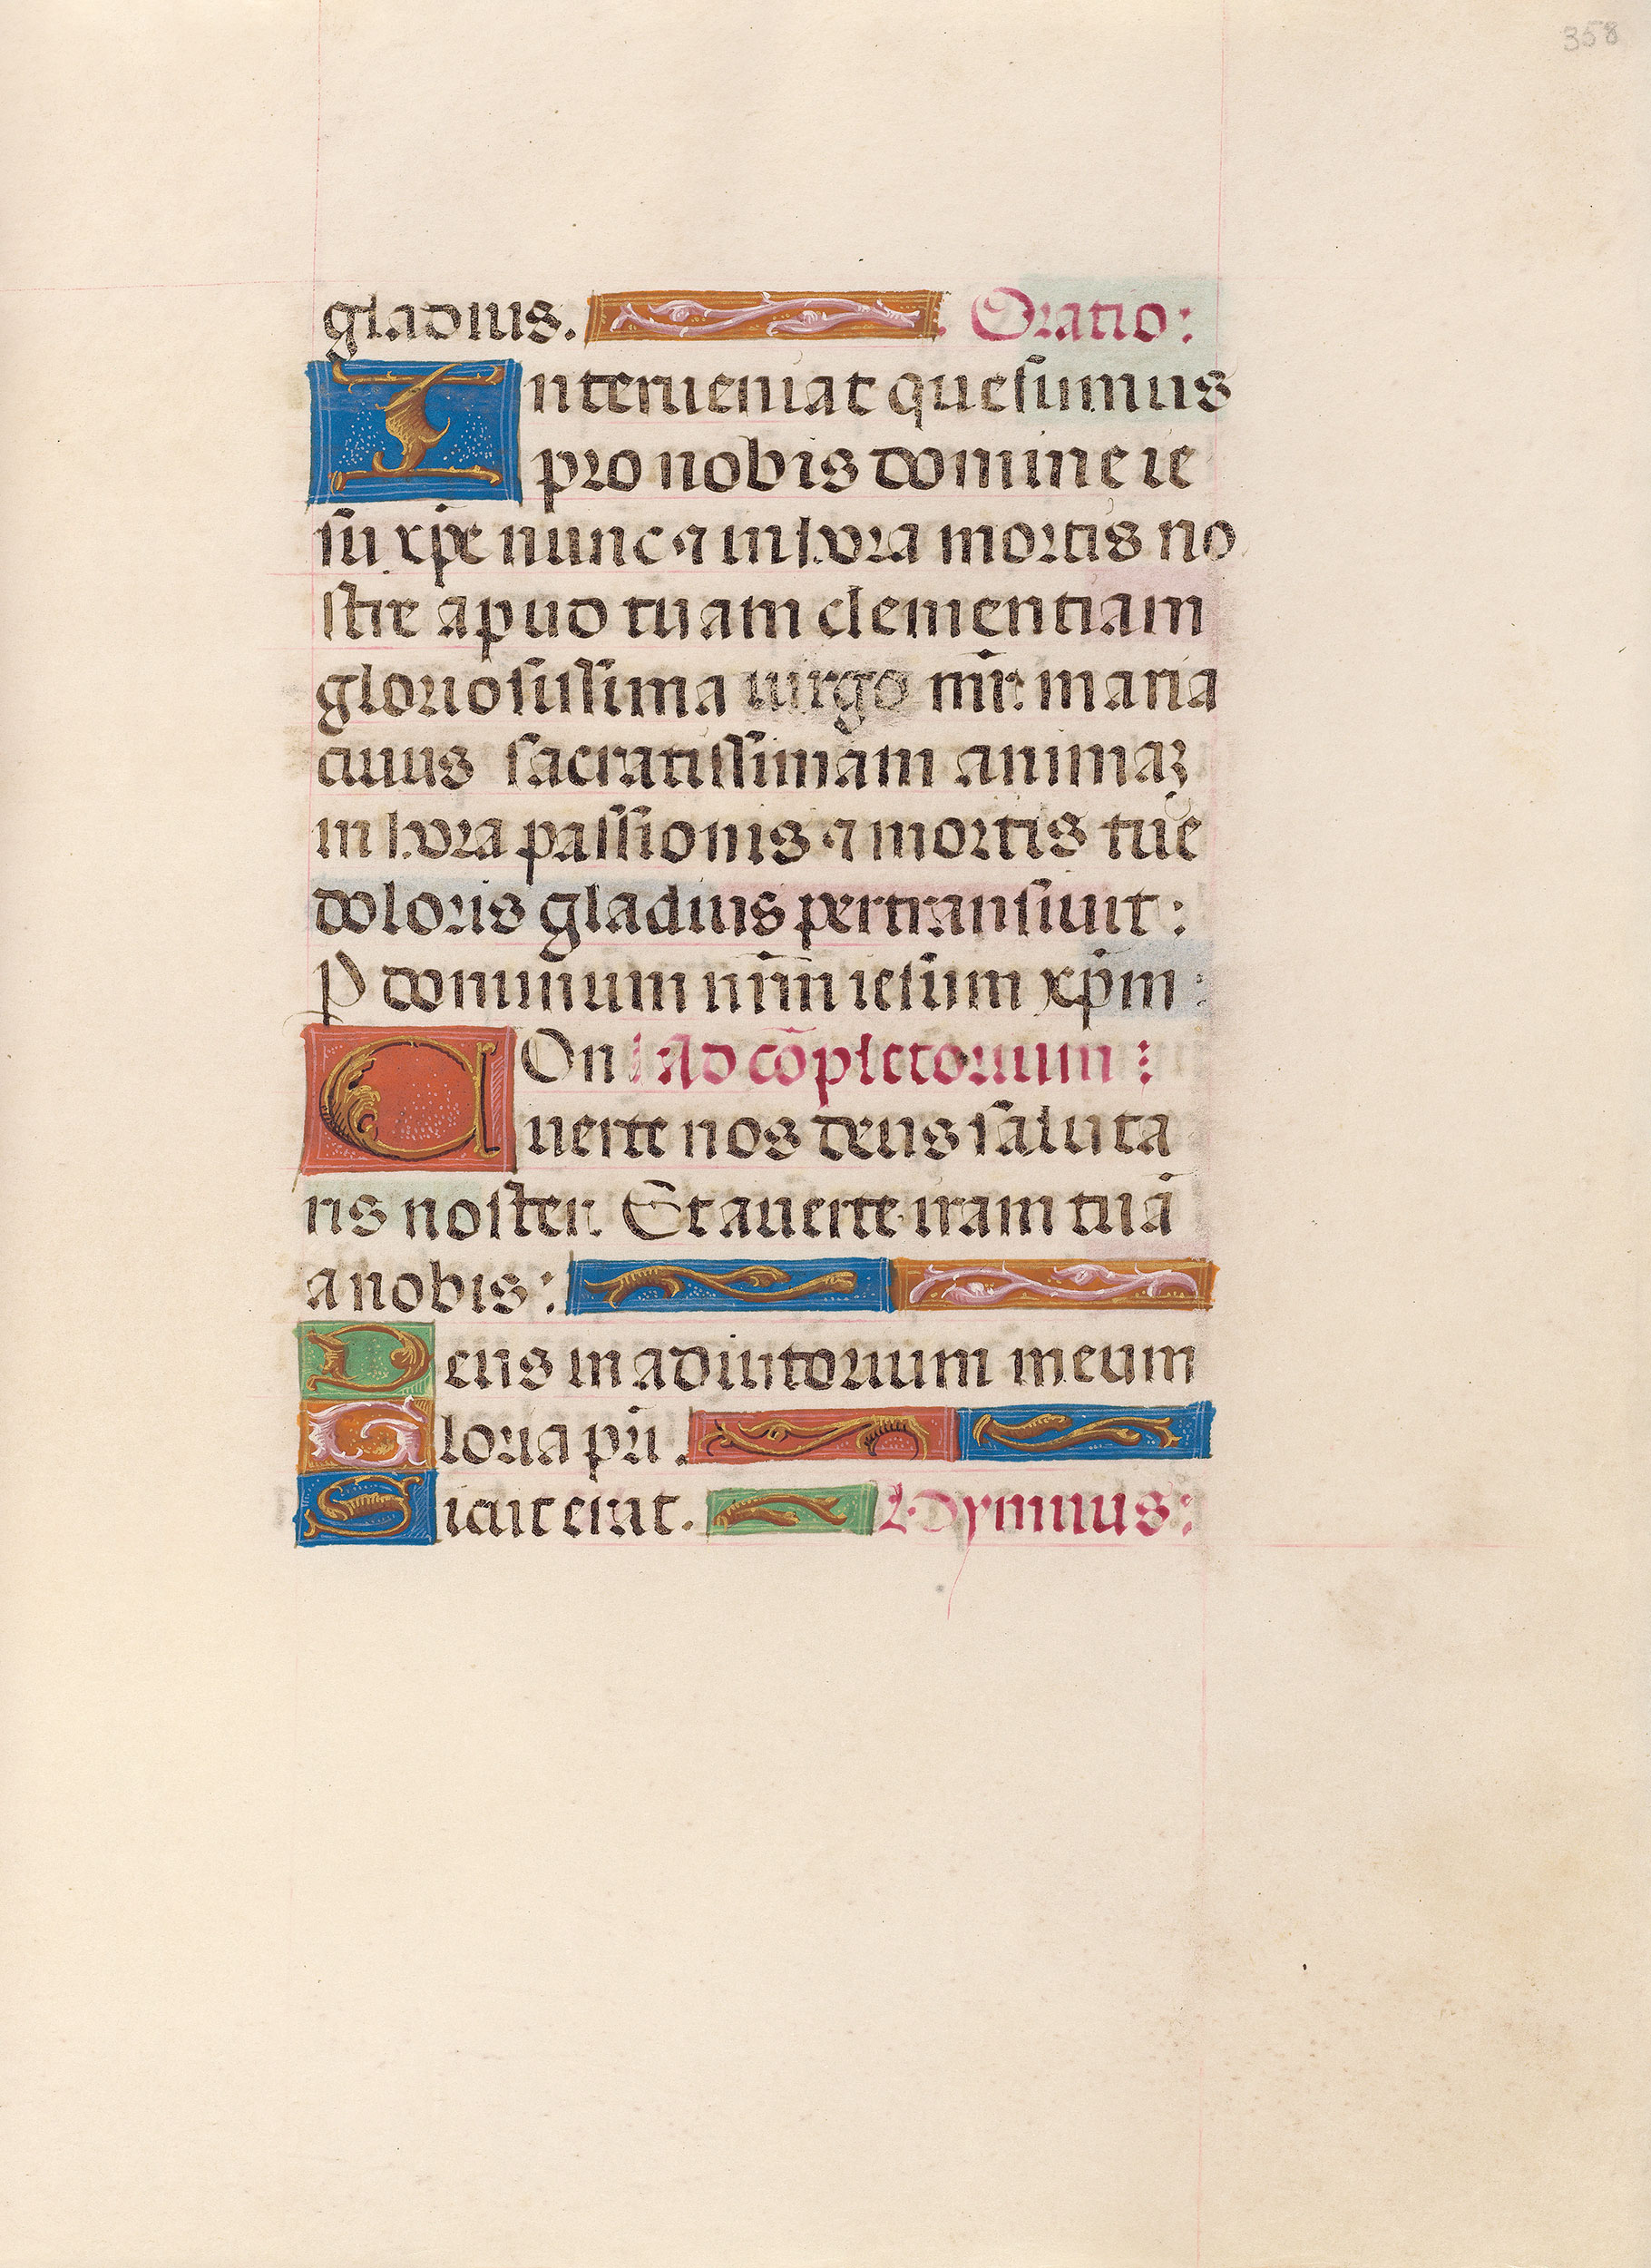 358
gladius. Oratio:
Interueniat quesumus
pro nobis domine ie
su xp̄e nunc ⁊ in hora mortis no
stre apud tuam clementiam
gloriosissima uirgo mr̄ maria
cuius sacratissimam animaꝫ
in hora passionis ⁊ mortis tue
doloris gladius pertransiuit:
P dominum nr̄m iesum xp̄m:
COn Ad cõpletorium:
uerte nos deus saluta
ris noster. Et auerte iram tuā
a nobis:
Deus in adiutorium meum
Gloria pr̄i.
Sicut erat. Hymnus: